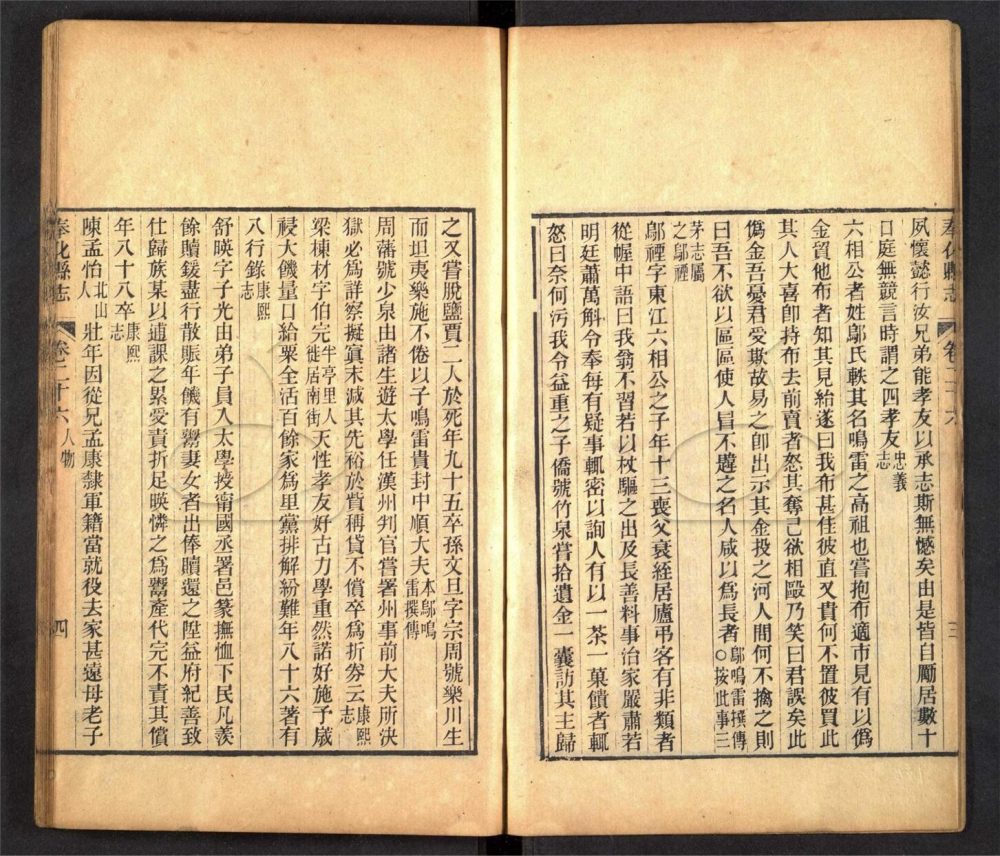 奉化縣志
卷二十六
三
夙懷懿行汝兄弟能孝友以承志斯無憾矣由是皆自勵居數十
口庭無競言時謂之四孝友忠義志
六相公者姓鄔氏軼其名鳴雷之高祖也嘗抱布適市見有以僞
金貿他布者知其見紿遂曰我布甚佳彼直又貴何不置彼買此
其人大喜卽持布去前賣者怒其奪己欲相毆乃笑曰君誤矣此
僞金吾憂君受欺故易之卽出示其金投之河人間何不擒之則
曰吾不欲以區區使人冒不韙之名人咸以爲長者鄔鳴雷撰傳○按此事三
茅志屬之鄔禋
鄔禋字東江六相公之子年十三喪父衰絰居廬弔客有非類者
從幄中語曰我翁不習若以杖驅之出及長善料事治家嚴肅若
明廷蕭萬斛令奉每有疑事輒密以詢人有以一茶一菓饋者輒
怒曰奈何污我令益重之子僑號竹泉嘗拾遺金一囊訪其主歸
之又嘗脫鹽賈二人於死年九十五卒孫文旦字宗周號樂川生
而坦夷樂施不倦以子鳴雷貴封中順大夫本鄔鳴雷撰傳
周藩號少泉由諸生遊太學任漢州判官嘗署州事前大夫所決
獄必爲詳察擬寘末減其先裕於貲稱貸不償卒爲折劵云康熙志
梁棟材字伯完牛亭里人徙居南街天性孝友好古力學重然諾好施予歲
祲大饑量口給粟全活百餘家爲里黨排解紛難年八十六著有
八行錄康熙志
舒暎字子光由弟子員入太學授甯國丞署邑篆撫恤下民凡羨
餘贖鍰盡行散賑年饑有鬻妻女者出俸贖還之陞益府紀善致
仕歸族某以逋課之累愛責折足暎憐之爲鬻產代完不責其償
年八十八卒康熙志
陳孟怡北山人壯年因從兄孟康隸軍籍當就役去家甚遠母老子
奉化縣志
卷二十六
人物
四